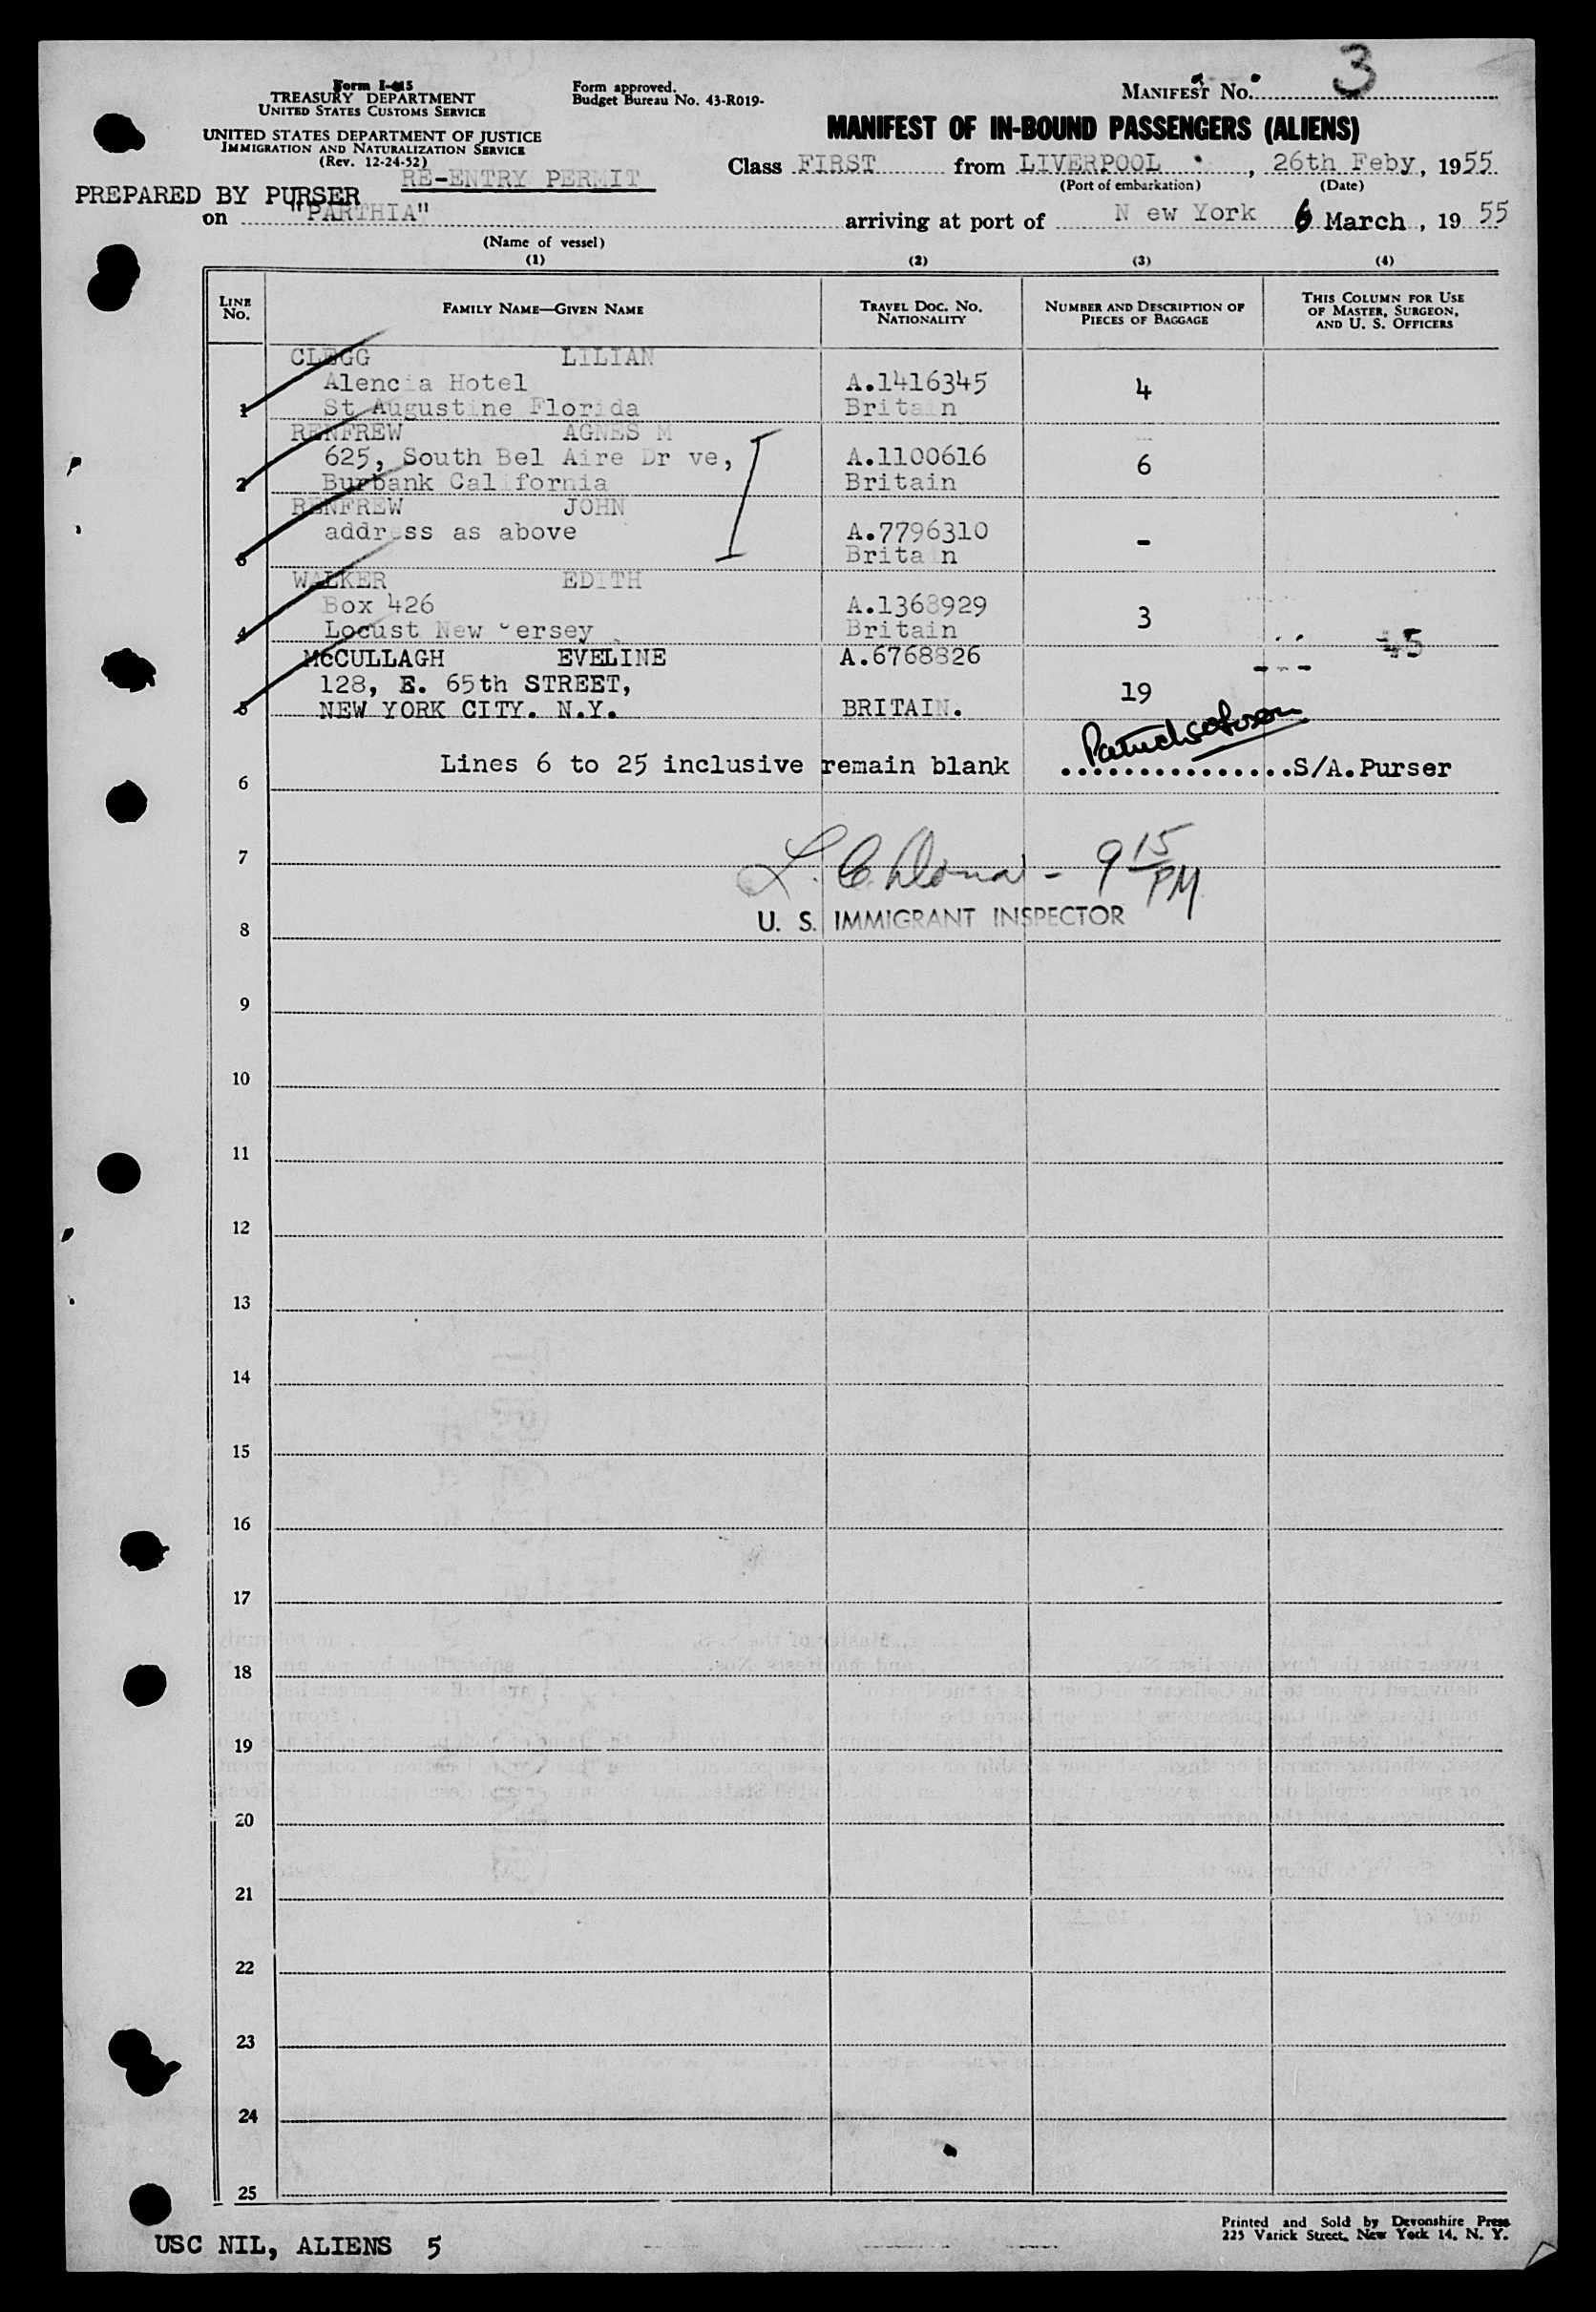 Form I-415
TREASURY DEPARTMENT
UNITED STATES CUSTOMS SERVICE
UNITED STATES DEPARTMENT OF JUSTICE
IMMIGRATION AND NATURALIZATION SERVICE
(Rev. 12-24-52)
Form approved.
Budget Bureau No. 43-R019-
MANIFEST No. 3
MANIFEST OF IN-BOUND PASSENGERS (ALIENS)
RE-ENTRY PERMIT
Class FIRST from LIVERPOOL, 26th Feby, 1955
(Port of embarkation) (Date)
PREPARED BY PURSER
on "PARTHIA" arriving at port of N ew York 6 March, 19 55
(Name of vessel)
(1) (2) (3) (4)
LINE No. FAMILY NAME—GIVEN NAME TRAVEL DOC. No. NATIONALITY NUMBER AND DESCRIPTION OF PIECES OF BAGGAGE THIS COLUMN FOR USE OF MASTER, SURGEON, AND U. S. OFFICERS
CLEGG LILIAN
Alencia Hotel A.1416345 4
1 St Augustine Florida Britain
RENFREW AGNES M
625, South Bel Aire Dr ve, A.1100616 6
2 Burbank Cal fornia Britain
RENFREW JOHN
address as above A.7796310 -
3 Brita n
WALKER EDITH
Box 426 A.1368929 3
4 Locust New Jersey Britain
45
McCULLAGH EVELINE A.6768826
128, E. 65th STREET, 19
5 NEW YORK CITY. N.Y. BRITAIN.
Lines 6 to 25 inclusive remain blank ................S/A.Purser
6
7
9 15 PM
U. S. IMMIGRANT INSPECTOR
8
9
10
11
12
13
14
15
16
17
18
19
20
21
22
23
24
25
USC NIL, ALIENS 5
Printed and Sold by Devonshire Press
225 Varick Street, New York 14, N. Y.